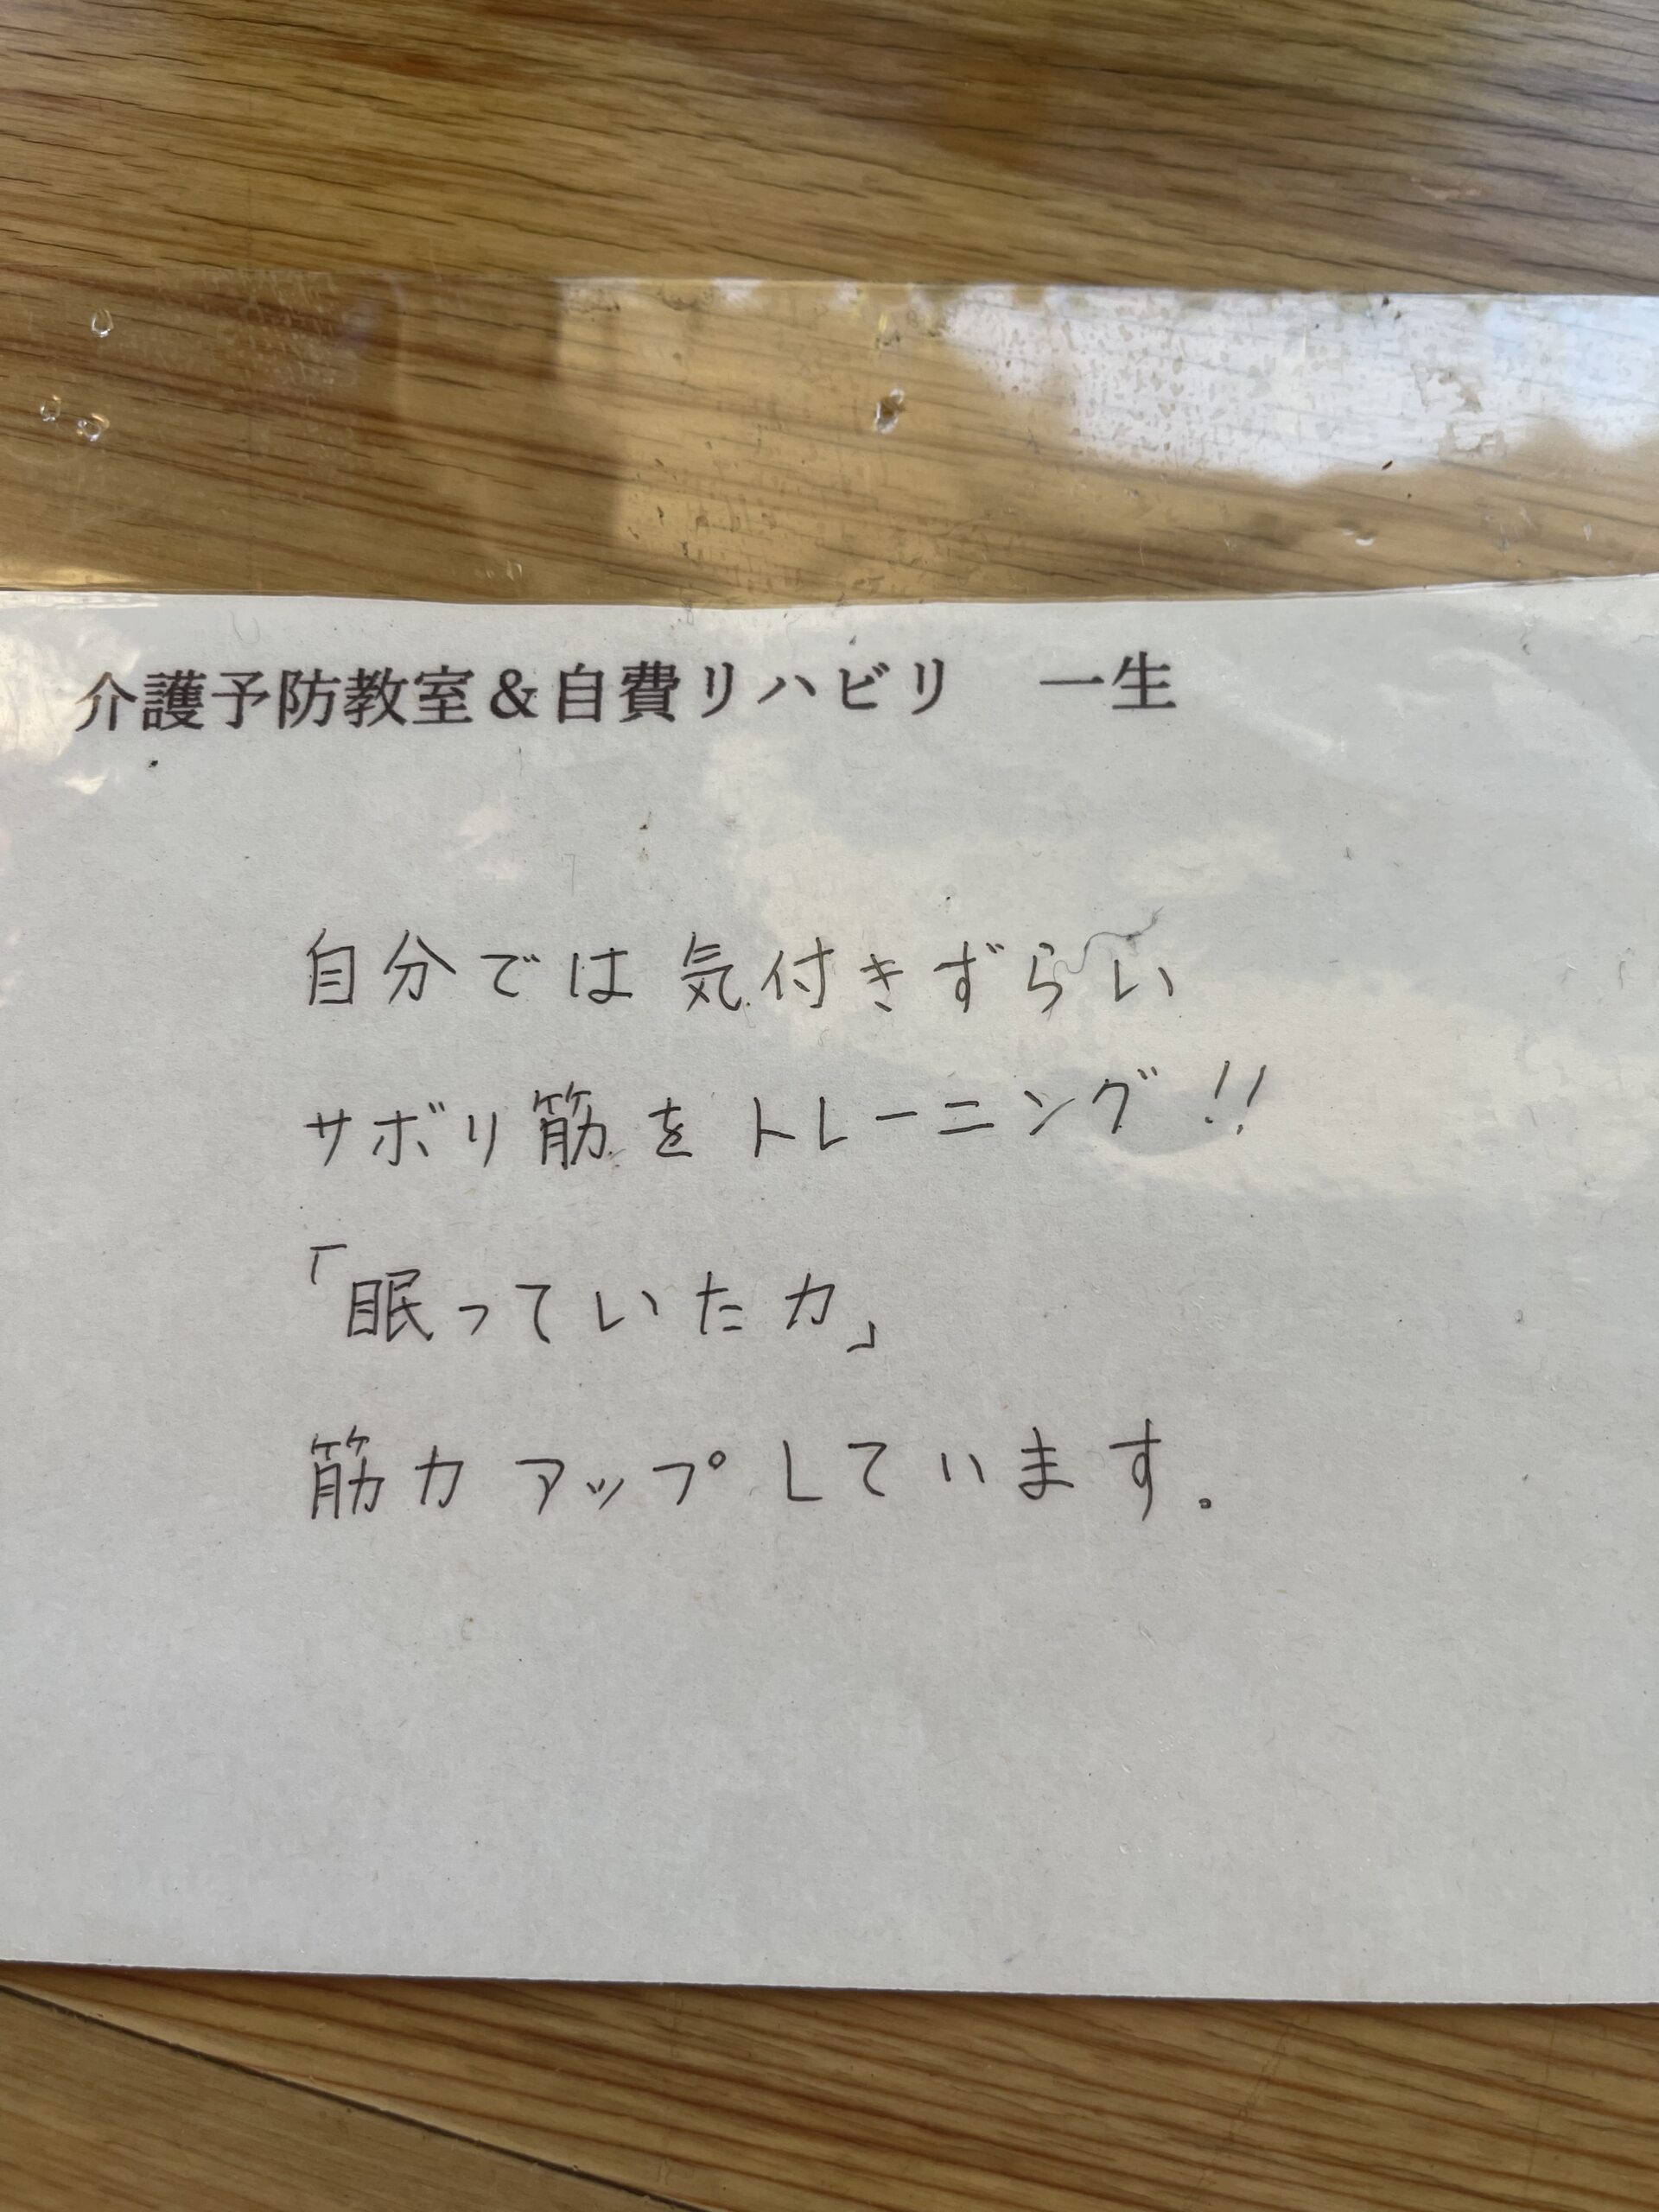 介護予防教室＆自費リハビリ　一生
自分では気付きずらい
サボリ筋をトレーニング!!
「眠っていた力」
筋力アップしています。